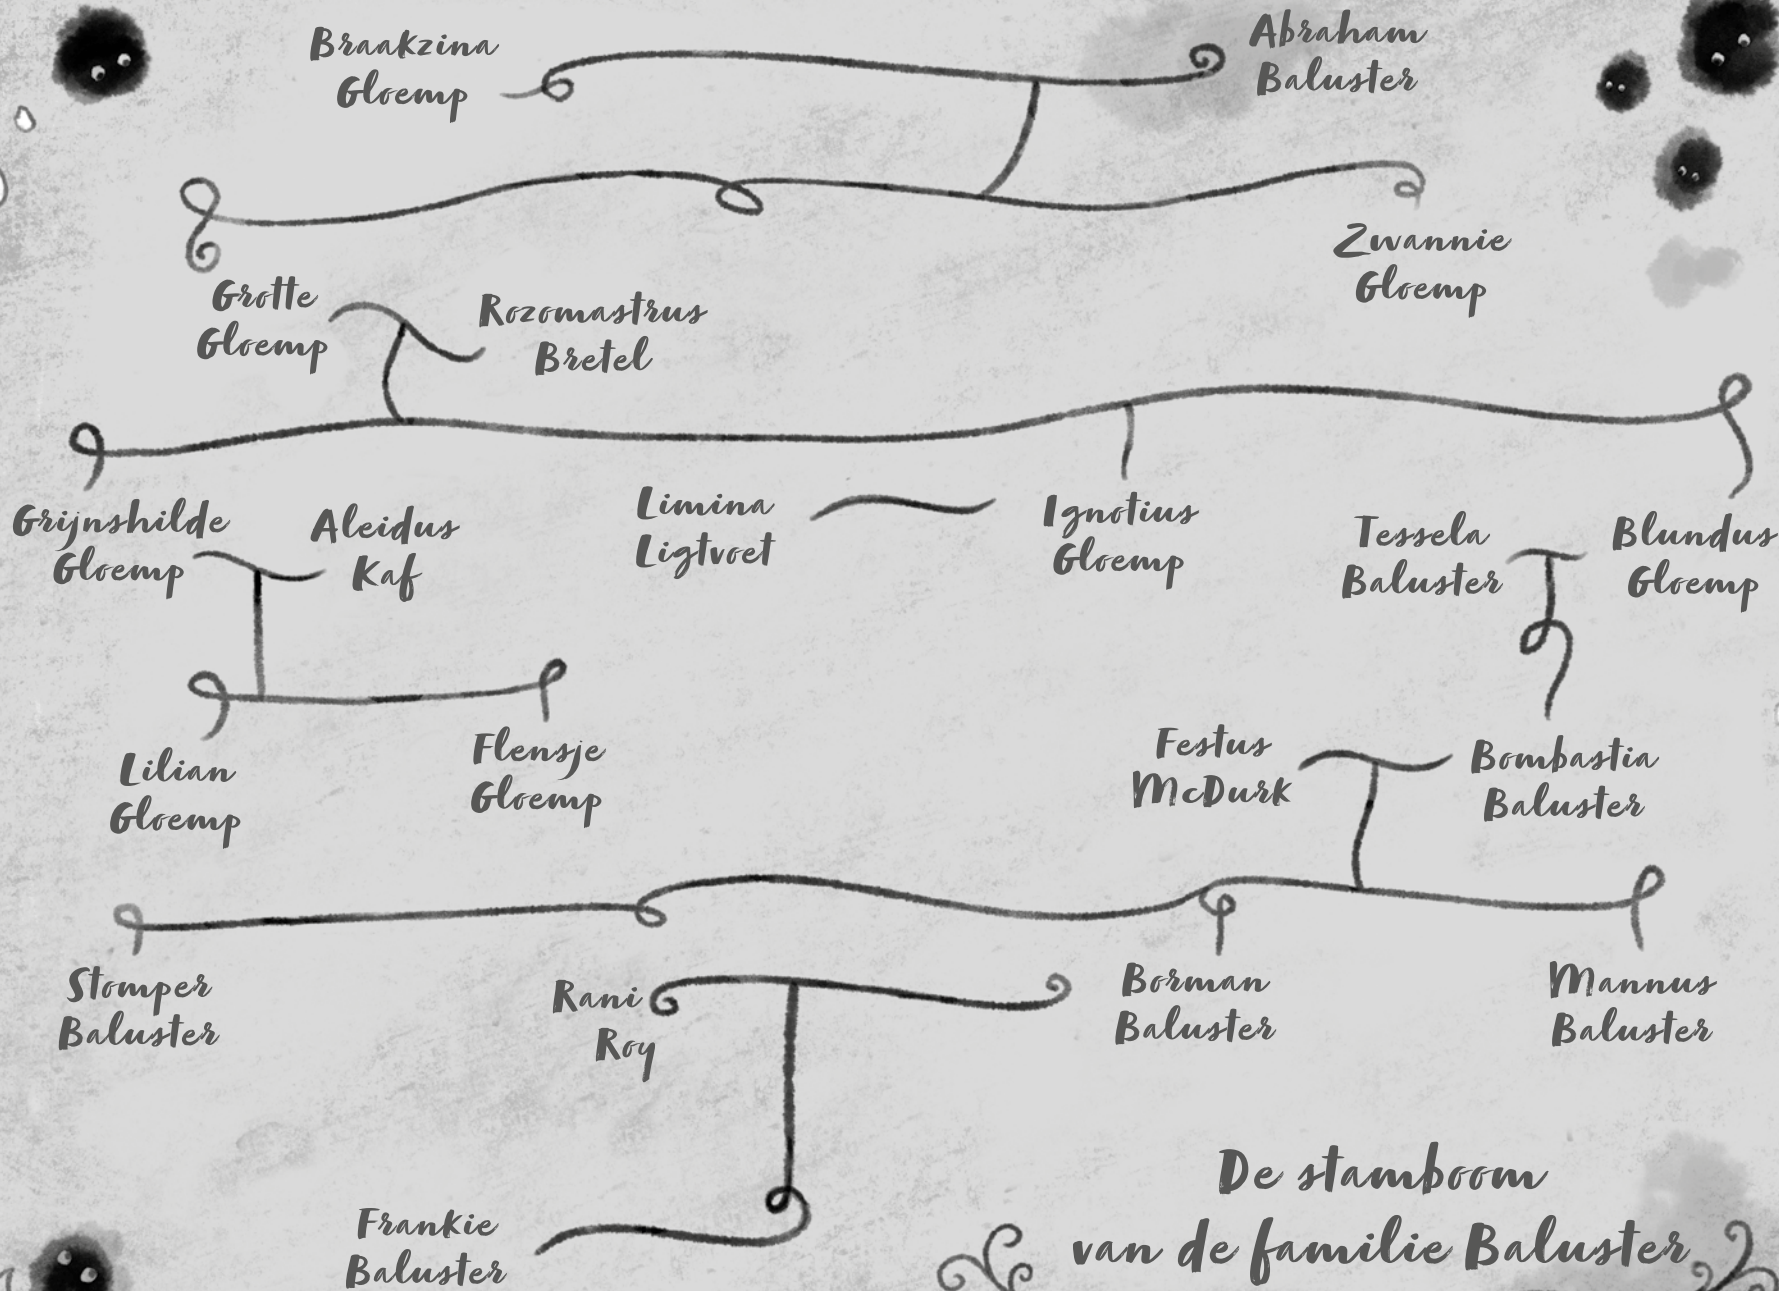 Braakzina
Gloemp
Abraham
Baluster
Zwannie
Gloemp
Grotte
Gloemp
Rozomastrus
Bretel
Grijnshilde
Gloemp
Aleidus
Kaf
Limina
Ligtvoet
Ignotius
Gloemp
Tessela
Baluster
Blundus
Gloemp
Lilian
Gloemp
Flensje
Gloemp
Festus
McDurk
Bombastia
Baluster
Stomper
Baluster
Rani
Roy
Borman
Baluster
Mannus
Baluster
Frankie
Baluster
De stamboom
van de familie Baluster